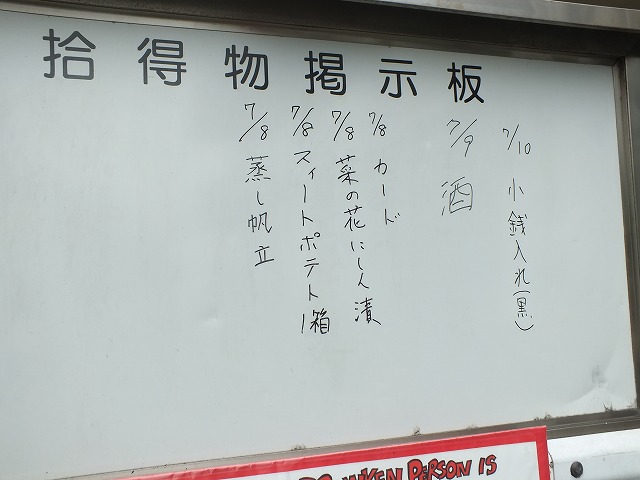 拾得物掲示板
7/10 小銭入れ(黒)
7/9 酒
7/8 カード
7/8 菜の花にしん漬
7/8 スィートポテト1箱
7/8 蒸し帆立
PERSON IS